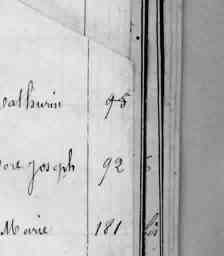 athurin 95
ore Joseph 92
Marie 181 bis